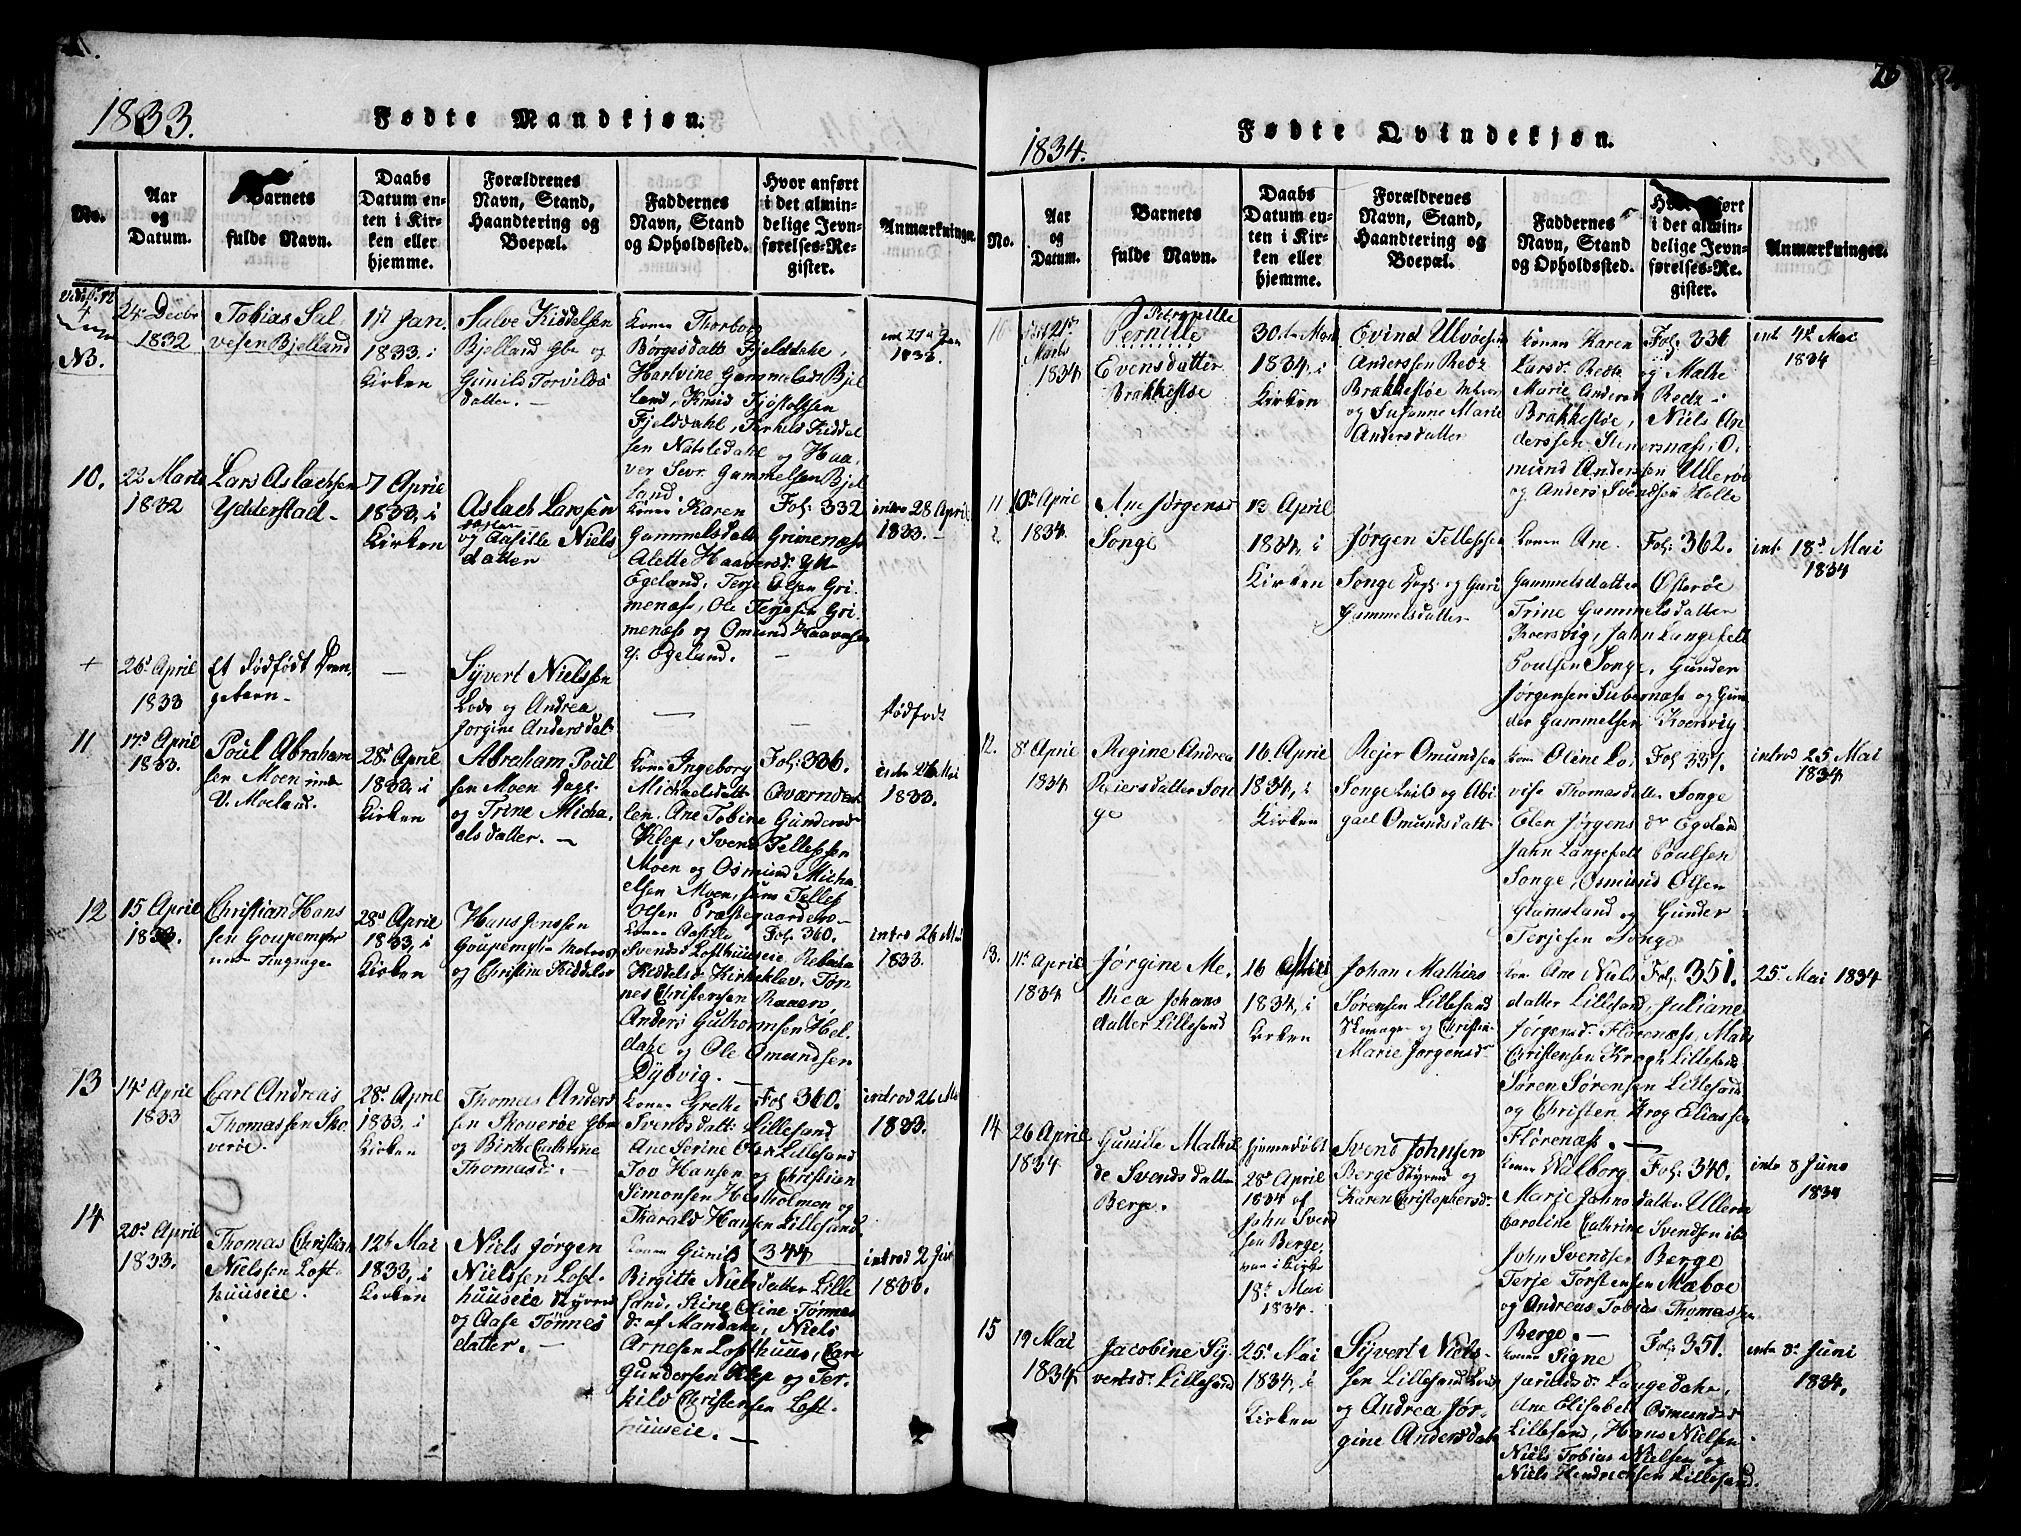 1833.
Fødte Mandkjøn.
No.
Aar
og
Datum.
Barnets
fulde Navn.
Daabs
Datum en-
ten i Kir-
ken eller
hjemme.
Forældrenes
Navn, Stand,
Haandtering og
Boepæl.
Faddernes
Navn, Stand
og Opholdssted.
Hvor anført
i det almin-
delige Jevn-
førelses-Re-
gister.
Anmærkninger.
4
NB.
24 Decbr
1832
Tobias Sal
vesen Bjelland
17 Jan.
1833. i
Kirken
Salve Kiddelsen
Bjelland Gbr og
Gunild Torvilds
datter. —
Kone Thorborg
Børgesdatt Fjelddahl,
Hartvine Gammelsdt Bjel
land, Knud Fjøstolfsen
Fjelddahl, Terkels Kiddel
sen Natsledahl og Haa
ver Sevr. Gammelsen Bjel
land.
1833.
10.
22 Marts
1832
Lars Aslachsen
Ydderstad —
7 April
1833, i
Kirken
Aslach Larssen
og Aasille Niels
datter
Kone Karen
Gammelsdatt Grimenæss
Alette Haaversd: Ytt
Egeland, Terje Olsen Gri
menæss, Ole Terjesen Gri
menæss og Omund Haaversen
Y. Egeland. —
Fol: 332
introd 28 April
1833. —
+
26 April
1833
Et dødfødt Dren
gebarn —
—
Syvert Nielsen
Lods og Andrea
Jorgine Andersdat
—
—
dødfødt
11
17d April
1833.
Poul Abraham
sen Moen
V. Moeland.
28d April
1833, i
Kirken
Abraham Poul
sen Moen
og Trine Micha
elsdatter. —
Kone Ingeborg
Michaelsdatt Qværndal
len, Ane Tobine Gundersd
Klep, Svend Tellefsen
Moen og Osmund Micha
elsen Moen, Tellef
Olsen Præstegaarden —
Fol: 336.
introd 26 Mai
1833.
12
15 April
1833.
Christian Hans
sen Goupemyr
28d April
1833, i
Kirken
Hans Jenssen
Goupemyr
og Christine Kiddelsd
Kone Aasille
Svendsd Lofthuuseie, Rebekka
Kiddelsd Kirkeklev, Tøn
nes Christensen Raaerø,
Anders Guthormsen Hel
dahl og Ole Omundsen
Dybvig. —
Fol: 360.
introd 26 Mai
1833.
13
14d April
1833
Carl Andreas
Thomassen Sko
verøe.
28d April
1833, i
Kirken
Thomas Anders
sen Skoverøe Gbr
og Birthe Cathrine
Thomasd: —
Kone Grethe
Svendsdatt: Lillesand
Ane Serine Olsen Lillesand
Jov Hansen og Christian
Simonsen Hestholmen og
Tharald Hansen Lillesand
Fol 360.
introd 26 Mai
1833.
14
20d April
1833.
Thomas Christian
Nielssen Loft
huuseie.
12t Mai
1833, i
Kirken
Niels Jørgen
Nielssen Loft
huuseie Styrm
og Aase Tønnes
datter. —
Kone Gunild
Birgitte Nielsdatter Lille
sand, Stine Oline Tønnes
d: af Mandahl, Niels
Arnesen Lofthuus, Carl
Gundersen Klep og Ter
kild Christensen Loft
huuseie. —
344
introd 2 Jun
1833.
1834.
75
Fødte Qvindekjøn.
No.
Aar
og
Datum.
Barnets
fulde Navn.
Daabs
Datum en-
ten i Kir-
ken eller
hjemme.
Forældrenes
Navn, Stand,
Haandtering og
Boepæl.
Faddernes
Navn, Stand
og Opholdssted.
Hvor anført
i det almin-
delige Jevn-
førelses-Re-
gister.
Anmærkninger.
10
21d
Marts
1834
Pernille
Evensdatter
Brakkestøe
30 Marts
1834, i
Kirken
Evind Ulvøesen
Anderssen
Brakkestøe
og Susanne Marie
Andersdatter
Kone Karen
Larsd:
Marie Andersd
Brakkestøe, Niels An
derssen Steinersnæss, O
mund Andersen Ullerøe
og Anders Svendsen Holte
Fol: 336
int. 4d Mai
1834
11
10d April
1834.
Ane Jørgensd
Songe
13 April
1834, i
Kirken
Jørgen Tellefsen
Songe og Guri
Gammelsdatter
Kone Ane
Gammelsdatter Østerøe
Trine Gammelsdatter
Koersvig, Jahn Langefeldt
Poulsen Songe, Gunder
Jørgensen Tubernæss og Gun
der Gammelsen Koersvig
Fol: 362.
int. 18d Mai
1834
12.
8 April
1834
Regine Andrea
Reiersdatter Son
ge
16 April
1834, i
Kirken
Rejer Omundsen
Songe og Abi
gael Omundsdatt
Kone Oline Lo
vise Thomasdatter Songe
Elen Jørgens dr Egeland
Jahn Langefelt Poulsen
Songe, Osmund Olsen
Glamsland og Gunder
Terjesen Songe
Fol: 337.
introd 25 Mai
1834
13.
11d April
1834
Jørgine Me
thea Johans
datter Lillesand
16 April
1834, i
Kirken
Johan Mathias
Sørensen Lillesand
Skomager og Christen
Marie Jorgensd
Kone Ane Niels
datter Lillesand, Juliane
Jørgensd: Florenæss, Mads
Christensen Krogh Lillesand
Søren Sørensen Lillesand
og Christen Krog Eliassen
Florenæss. —
Fol: 351.
25d Mai 1834
14
26 April
1834
Gunille Mathil
de Svendsdatter
Berge.
hjemmedøbt
28d April
1834 af
John Svend
sen Berge,
var i Kirke
18d Mai
1834.
Svend Johnsen
Berge Styrm og
Karen Christophersd:
Kone Walborg
Marie Johnsdatter Ullerøe
Caroline Cathrine Svendsen ib.
John Svendsen Berge
Terje Torstensen Maboe
og Andreas Tobias Thomassen
Berge. —
Fol: 340.
intr 8 Juni
1834
15
19 Mai
1834
Jacobine Sy
vertsd: Lillesand
25d Mai
1834, i
Kirken
Syvert Niels
sen Lillesand Lods
og Andrea Jør
gine Andersdat
Kone Signe
Jarulds d: Langedahl,
Ane Elisabet Osmundsd
Lillesand, Hans Nielsen
Niels Tobias Nielsen og
Niels Hendrichsen Lillesand.
Fol: 351.
intr 8d Juni
1834.